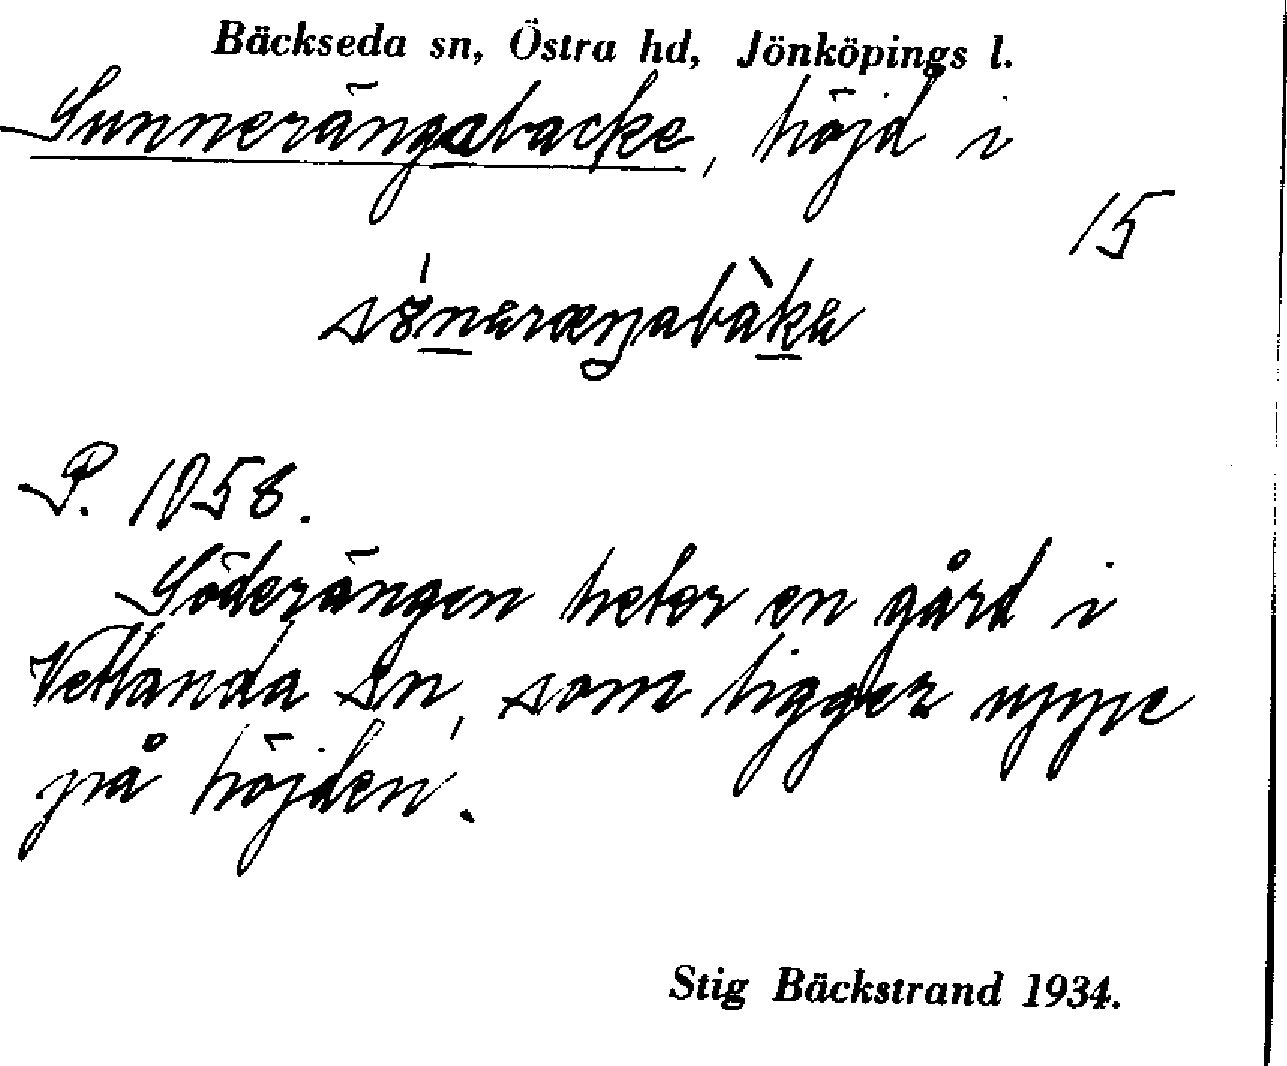 Bäckseda sn, Östra hd, Jönköpings l.
Sunnerängabacke, höjd i
15
P. 1058.
Söderängen heter en gård i
Vetlanda sn, som ligger uppe
på höjden.
Stig Bäckstrand 1934.